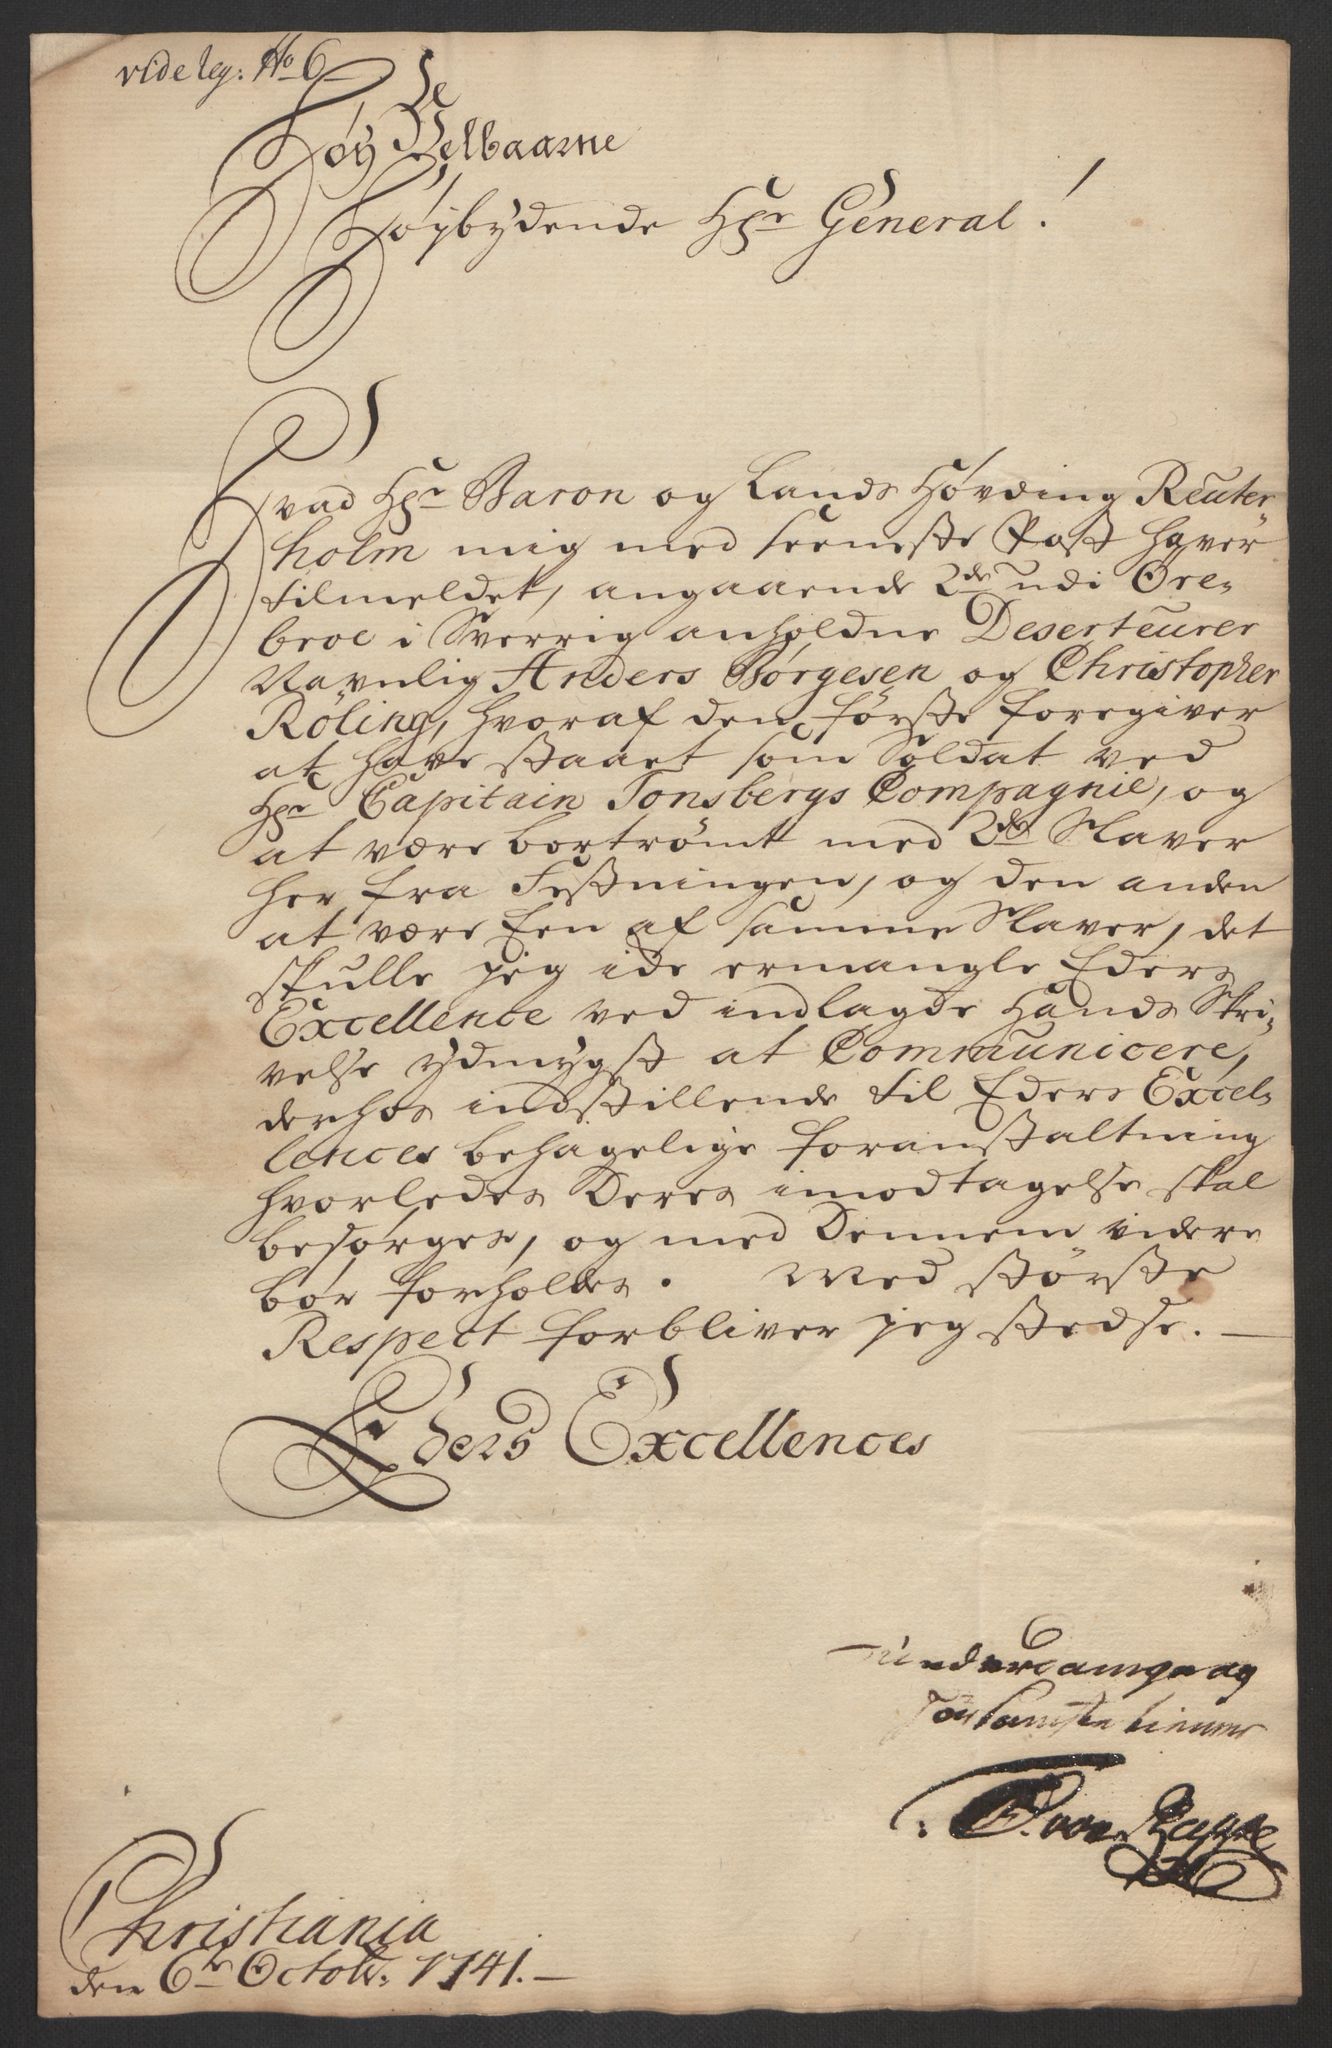 vide leg: No 6
Höy Velbaarne
Höybydende Hr General!
Hvad Hr Baron og Lands Høvding Reuter-
holm mig med seeneste Post haver
tilmeldet, angaaende 2de udi Øre-
broe i Sverrig anholdne Deserteurer
Navnlig Anders Børgesen og Christopher
Röling, hvoraf den første foregiver
at have staaet som Soldat ved
Hr Capitain Tonsbergs Compagnie, og
at være bortrømt med 2de Slaver
her fra Festningen, og den anden
at være Een af samme Slaver, det
skulle jeg icke ermangle Eders
Excellence ved indlagde Hands Skri-
velse ydmygst at Communicere,
derhos indstillende til Eders Excel-
lences behagelige foranstaltning
hvorledes Deres imodtagelse skal
besørges, og med Dennem videre
bør forholdes. Med største
Respect forbliver jeg stedse.
Eders Excellences
underdanige og
tienner
von
Christiania
den 6te Octobr: 1741.